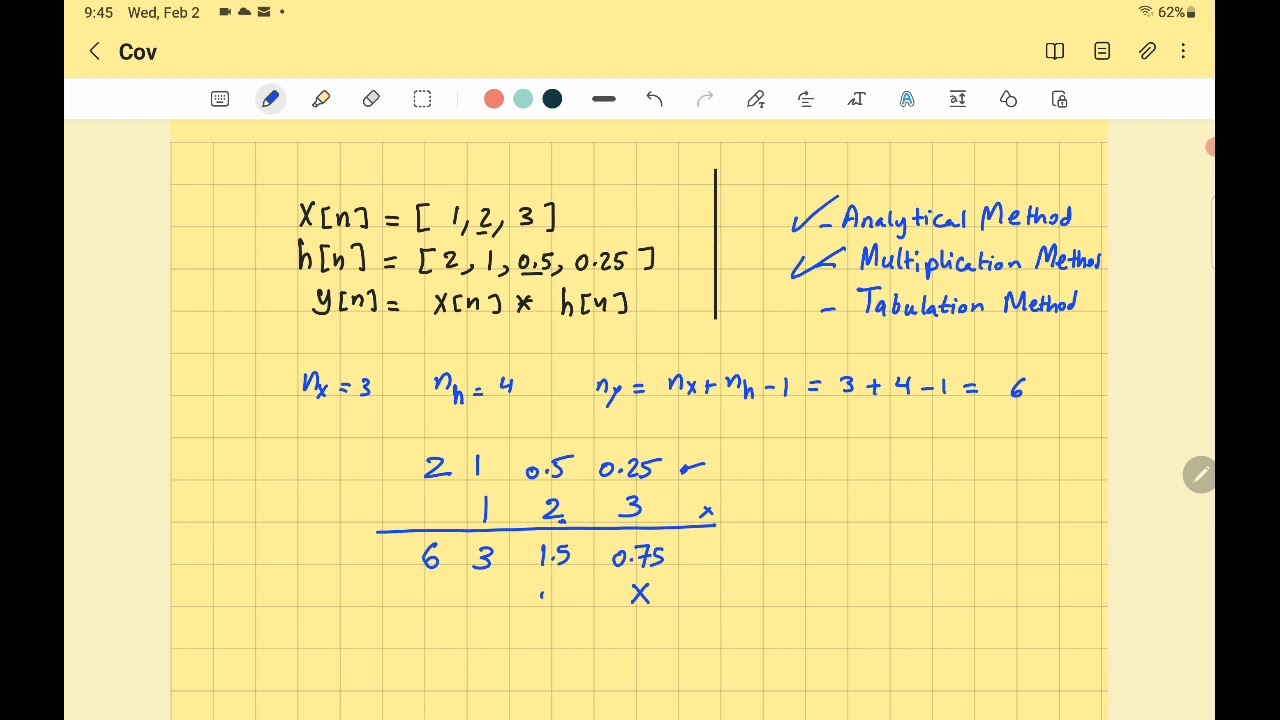 9:45 Wed, Feb 2 62%
Cov
X[n] = [ 1, 2, 3 ]
h[n] = [ 2, 1, 0.5, 0.25 ]
y[n] = x[n] * h[n]
- Analytical Method
- Multiplication Method
- Tabulation Method
nx = 3 nh = 4 ny = nx + nh - 1 = 3 + 4 - 1 = 6
2 1 0.5 0.25
1 2 3 x
6 3 1.5 0.75
. X